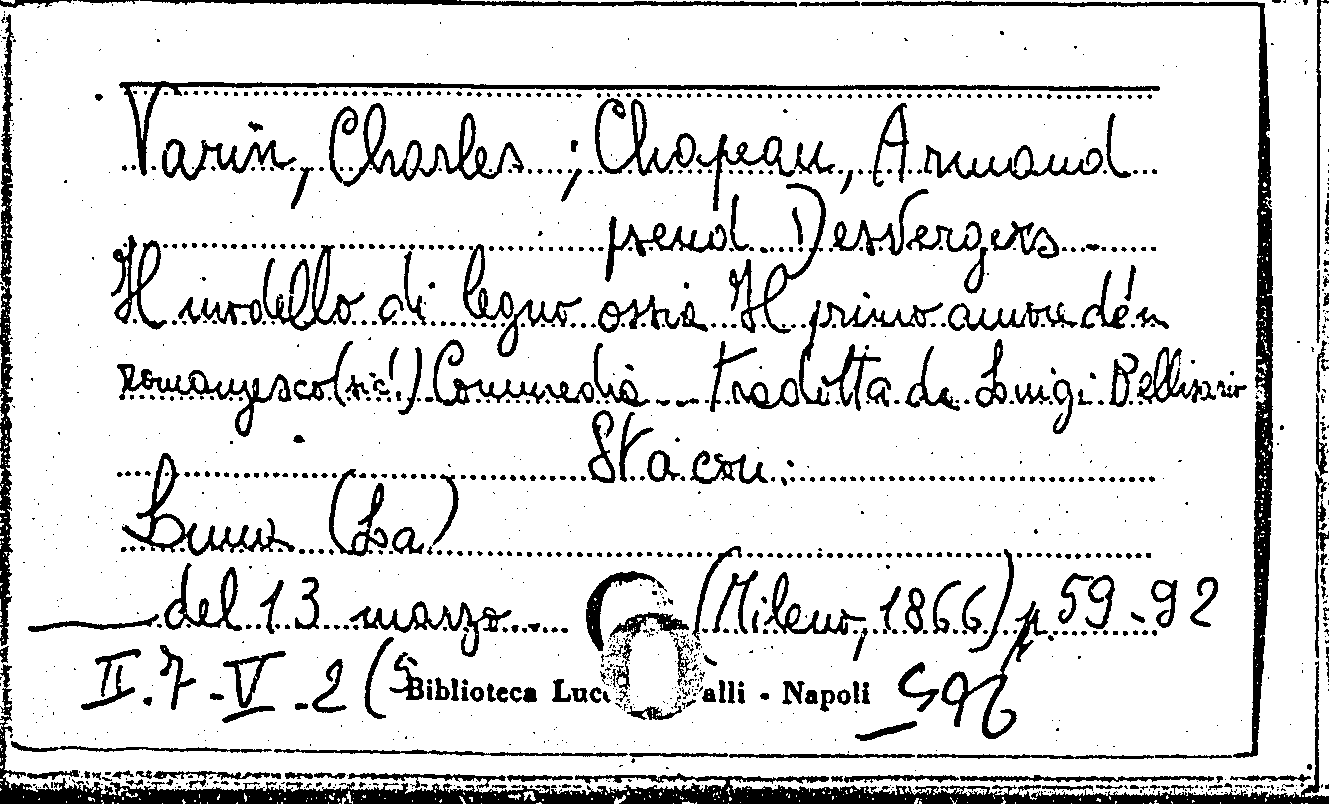 Varin, Charles ; Chapeau, Armand
pseud Desvergers -
Il modello di legno ossia Il primo amore d'un
romanzesco (sic!) Commedia -- tradotta da Luigi Bellisario
Sta con:
(La)
del 13 marzo - (Milano, 1866) p. 59-92
II.7-V.2(5
Biblioteca Lucc alli - Napoli